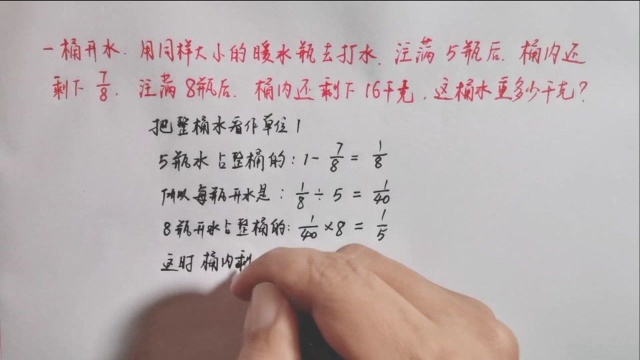 一桶开水.用同样大小的暖水瓶去打水.注满5瓶后.桶内还
剩下 7/8.注满8瓶后.桶内还剩下16千克.这桶水重多少千克?
把整桶水看作单位1
5瓶水占整桶的:1-7/8=1/8
所以每瓶开水是:1/8÷5=1/40
8瓶开水占整桶的:1/40×8=1/5
这时桶内剩